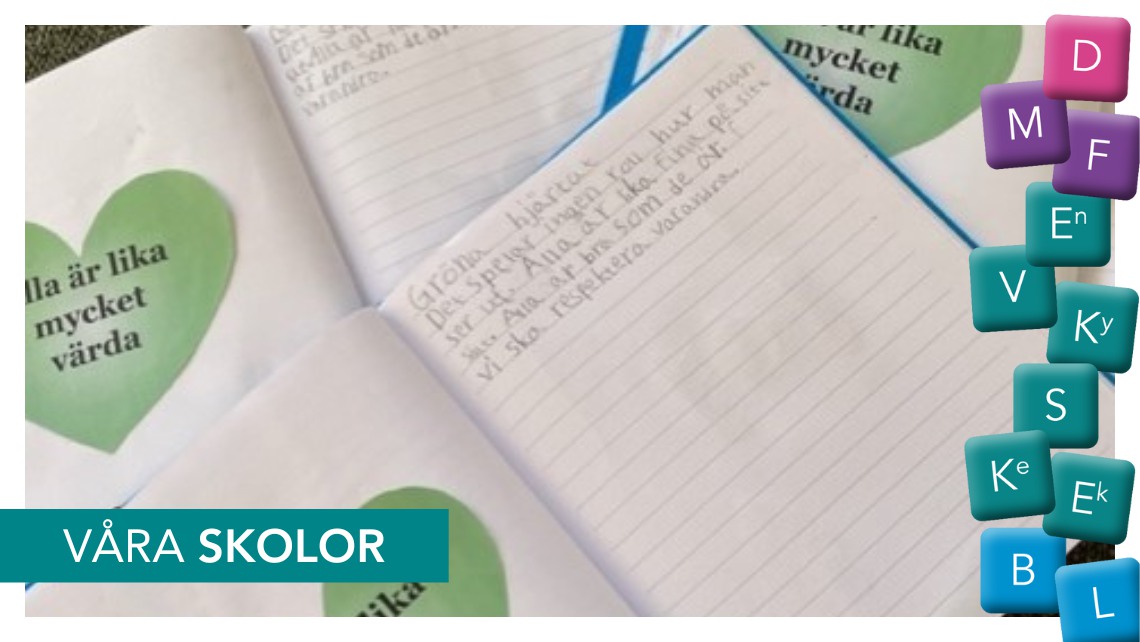 lla är lika
mycket
värda
är lika
mycket
ärda
är bra som de är
varandra.
Gröna hjärtat
Det spelar ingen roll hur man
ser ut. Alla är lika fina på sitt
sätt. Alla är bra som de är.
Vi ska respektera varandra.
lika
VÅRA SKOLOR
D
M
F
Eⁿ
V
Kʸ
S
Kᵉ
Eᵏ
B
L